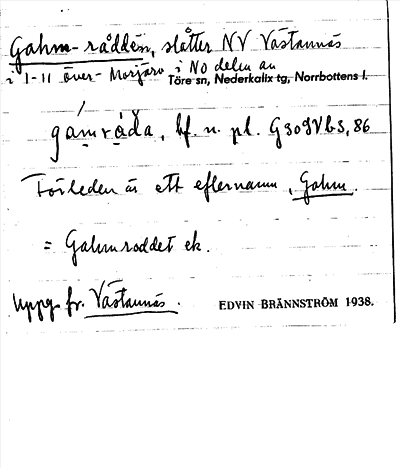 Gahm-rådden, slåtter NV Västannäs
i 1-11 över-Morjärv i NO delen av
Töre sn, Nederkalix tg, Norrbottens l.
gámrǻda, bf. n. pl. G309Vb3,86
Förleden är ett efternamn, Gahm.
= Gahmroddet ek.
Uppg. fr. Västannäs.
EDVIN BRÄNNSTRÖM 1938.